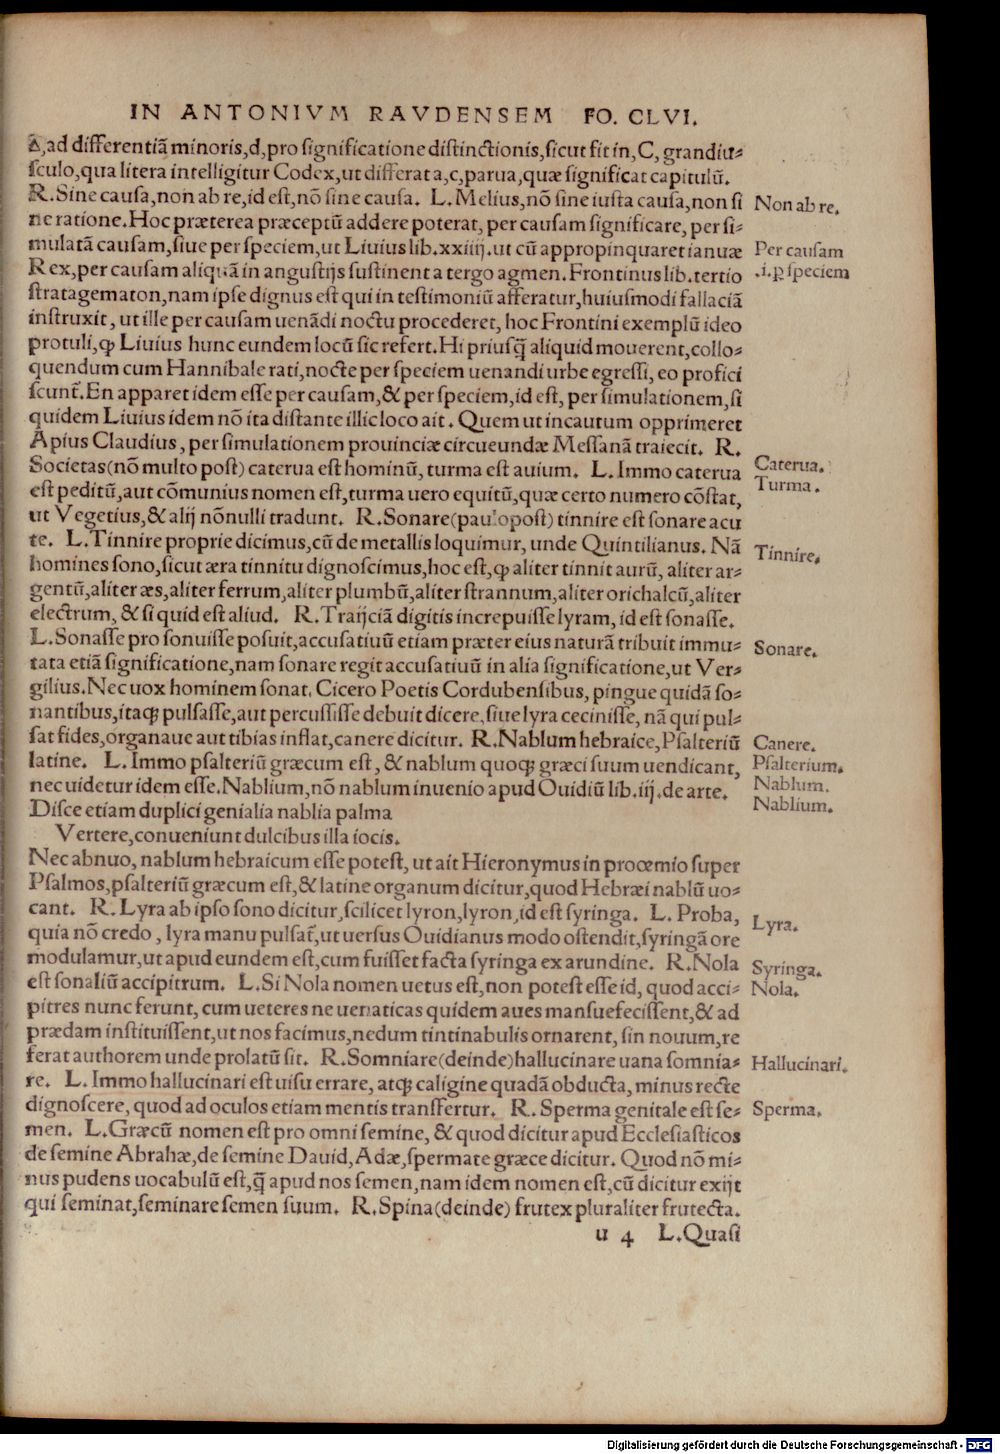 IN ANTONIVM RAVDENSEM FO. CLVI.
Δ,ad differentiā minoris,d,pro significatione distinctionis,sicut fit in,C, grandiu⸗
sculo,qua litera intelligitur Codex,ut differat a,c,parua,quæ significat capitulū.
R.Sine causa,non ab re,id est,nō sine causa. L.Melius,nō sine iusta causa,non si
ne ratione.Hoc præterea præceptū addere poterat, per causam significare, per si⸗
mulatā causam,siue per speciem,ut Liuius lib.xxiiij.ut cū appropinquaret ianuæ
Rex,per causam aliquā in angustijs sustinent a tergo agmen.Frontinus lib.tertio
stratagematon,nam ipse dignus est qui in testimoniū afferatur,huiusmodi fallaciā
instruxit, ut ille per causam uenādi noctu procederet, hoc Frontini exemplū ideo
protuli,ꝙ Liuius hunc eundem locū sic refert.Hi priusq̄ aliquid mouerent,collo⸗
quendum cum Hannibale rati,nocte per speciem uenandi urbe egressi, eo profici
scunt̄.En apparet idem esse per causam,& per speciem,id est, per simulationem,si
quidem Liuius idem nō ita distante illic loco ait. Quem ut incautum opprimeret
Apius Claudius, per simulationem prouinciæ circueundæ Messanā traiecit. R.
Societas(nō multo post) caterua est hominū, turma est auium. L.Immo caterua
est peditū,aut cōmunius nomen est,turma uero equitū,quæ certo numero cōstat,
ut Vegetius,& alij nōnulli tradunt. R.Sonare(paulopost) tinnire est sonare acu
te. L.Tinnire proprie dicimus,cū de metallis loquimur, unde Quintilianus. Nā
homines sono,sicut æra tinnitu dignoscimus,hoc est,ꝙ aliter tinnit aurū, aliter ar⸗
gentū,aliter æs,aliter ferrum,aliter plumbū,aliter strannum,aliter orichalcū,aliter
electrum, & si quid est aliud. R.Traijciā digitis increpuisse lyram, id est sonasse.
L.Sonasse pro sonuisse posuit,accusatiuū etiam præter eius naturā tribuit immu⸗
tata etiā significatione,nam sonare regit accusatiuū in alia significatione,ut Ver⸗
gilius.Nec uox hominem sonat. Cicero Poetis Cordubensibus, pingue quidā so⸗
nantibus,itaqꝫ pulsasse,aut percussisse debuit dicere,siue lyra cecinisse, nā qui pul⸗
sat fides,organaue aut tibias inflat,canere dicitur. R.Nablum hebraice,Psalteriū
latine. L.Immo psalteriū græcum est, & nablum quoqꝫ græci suum uendicant,
nec uidetur idem esse.Nablium,nō nablum inuenio apud Ouidiū lib.iij.de arte.
Disce etiam duplici genialia nablia palma
Vertere,conueniunt dulcibus illa iocis.
Nec abnuo, nablum hebraicum esse potest, ut ait Hieronymus in procemio super
Psalmos,psalteriū græcum est,& latine organum dicitur,quod Hebræi nablū uo⸗
cant. R.Lyra ab ipso sono dicitur,scilicet lyron,lyron,id est syringa. L.Proba,
quia nō credo, lyra manu pulsat̄,ut uersus Ouidianus modo ostendit,syringā ore
modulamur,ut apud eundem est,cum fuisset facta syringa ex arundine. R.Nola
est sonaliū accipitrum. L.Si Nola nomen uetus est,non potest esse id, quod acci⸗
pitres nunc ferunt, cum ueteres ne uenaticas quidem aues mansuefecissent,& ad
prædam instituissent,ut nos facimus,nedum tintinabulis ornarent, sin nouum,re
ferat authorem unde prolatū sit. R.Somniare(deinde)hallucinare uana somnia⸗
re. L.Immo hallucinari est uisu errare, atqꝫ caligine quadā obducta, minus recte
dignoscere, quod ad oculos etiam mentis transfertur. R.Sperma genitale est se⸗
men. L.Græcū nomen est pro omni semine, & quod dicitur apud Ecclesiasticos
de semine Abrahæ,de semine Dauid,Adæ,spermate græce dicitur. Quod nō mi⸗
nus pudens uocabulū est,q̄ apud nos semen,nam idem nomen est,cū dicitur exijt
qui seminat,seminare semen suum. R.Spina(deinde) frutex pluraliter frutecta.
u 4 L.Quasi
Non ab re.
Per causam
.i.ꝑ speciem
Caterua.
Turma.
Tinnire.
Sonare.
Canere.
Psalterium.
Nablum.
Nablium.
Lyra.
Syringa.
Nola.
Hallucinari.
Sperma.
Digitalisierung gefördert durch die Deutsche Forschungsgemeinschaft - DFG